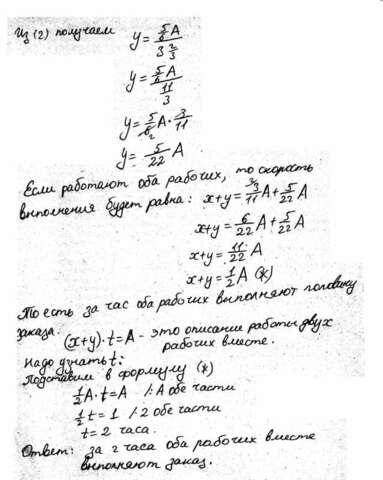 Из (2) получаем y = (5/6 A)/(3 2/3)
y = (5/6 A)/(11/3)
y = 5/6₂ A · 3/11
y = 5/22 A
Если работают оба рабочих, то скорость
выполнения будет равна: x+y = 3/11 A + 5/22 A
x+y = 6/22 A + 5/22 A
x+y = 11/22 A
x+y = 1/2 A (*)
То есть за час оба рабочих выполняют половину
заказа.
(x+y)·t = A - это описании работы двух
рабочих вместе.
Надо узнать t:
Подставим в формулу (*)
1/2 A · t = A /: A обе части
1/2 t = 1 /·2 обе части
t = 2 часа.
Ответ: за 2 часа оба рабочих вместе
выполняют заказ.